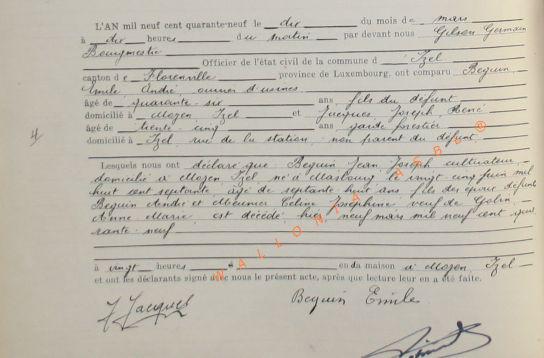 L'AN mil neuf cent quarante-neuf le dix du mois de mars
à dix heures du matin par devant nous Gilson Germain
Bourgmestre Officier de l'état civil de la commune d'Izel
canton de Florenville province de Luxembourg, ont comparu Bequin
Emile, André, ouvrier d'usines
âgé de quarante six ans fils du défunt
domicilié à Moyen, Izel et Jacques, Joseph, René
âgé de trente cinq ans garde forestier
domicilié à Izel rue de la station non parent du défunt
4
Lesquels nous ont déclaré que Bequin Jean Joseph cultivateur
domicilié à Moyen Izel né à Masbourg le vingt cinq juin mil
huit cent septante, âgé de septante huit ans, fils des époux défunts
Bequin André et Meunier Céline Joséphine veuf de Golin,
Anne Marie, est décédé, hier neuf mars mil neuf cent qua
rante-neuf
à vingt heures en sa maison à Moyen, Izel
et ont les déclarants signé avec nous le présent acte, après que lecture leur en a été faite.
J Jacques
Bequin Emile
WALLONIA ASBL ©